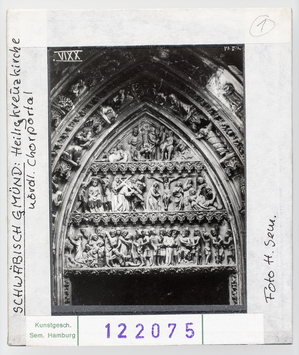 1
SCHWÄBISCH GMÜND: Heiligkreuzkirche
nördl. Chorportal
XXIV
Foto H. Sem.
Kunstgesch.
Sem. Hamburg
122075